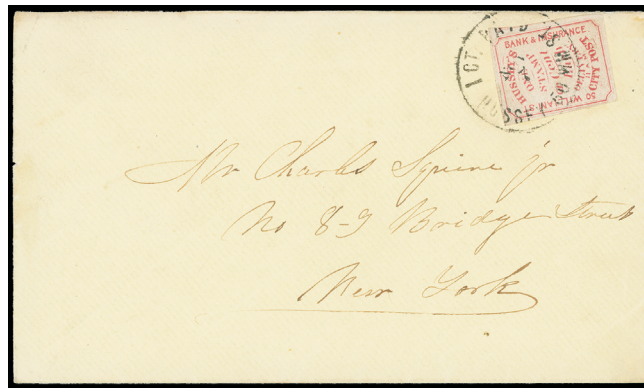 1 CT. PAID
BANK & INSURANCE
HUSSEY'S
CITY POST
50 WILLIAM ST
STAMP
Mr Charles Squire jr
No 8-9 Bridge Street
New York